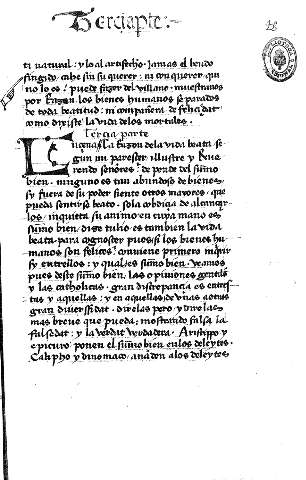 Terçia parte
28
ti natural: y lo al artefecho. Jamas el beudo
fingido. cabe sin su querer. ni con querer que
no lo es: puede fuyr del villano. muestranos
por Razon los bienes humanos separados
de toda beatitud: ni compañera de feliçidat
como dixiste la vida delos mortales.
Terçia parte
la Razon dela vida beata se
gun mi paresçer illustre y Reue
rendo señores: depende del sumo
bien. ninguno es tan abundoso de bienes
sy fuera de su poder siente otros mayores. que
pueda sentirse beato. Sola cobdiçia de alcançar
los. inquieta su animo en cuya mano es
sumo bien. dize tulio es tambien la vida
beata. para cognosçer pues si los bienes hu
manos son feliçes: conuiene primero inquirir
sy entrellos. y qual es sumo bien. Veamos
pues deste sumo bien. las opiniones gentiles
y las catholicas. gran discrepançia es entres
tas y aquellas: y en aquellas: de vnas a otras
gran diuersidat. direlas pero. y direlas
mas breue que pueda: mostrando falsa la
falsedat: y la verdat verdadera. Aristippo y
epicuro ponen el sumo bien enlos deleytes.
Calipho y dinomaco. anaden alos deleytes